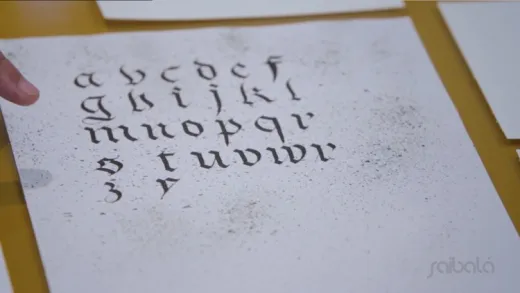 a b c d e f
g h i j k l
m n o p q r
s t u v w x
z y
saibalá